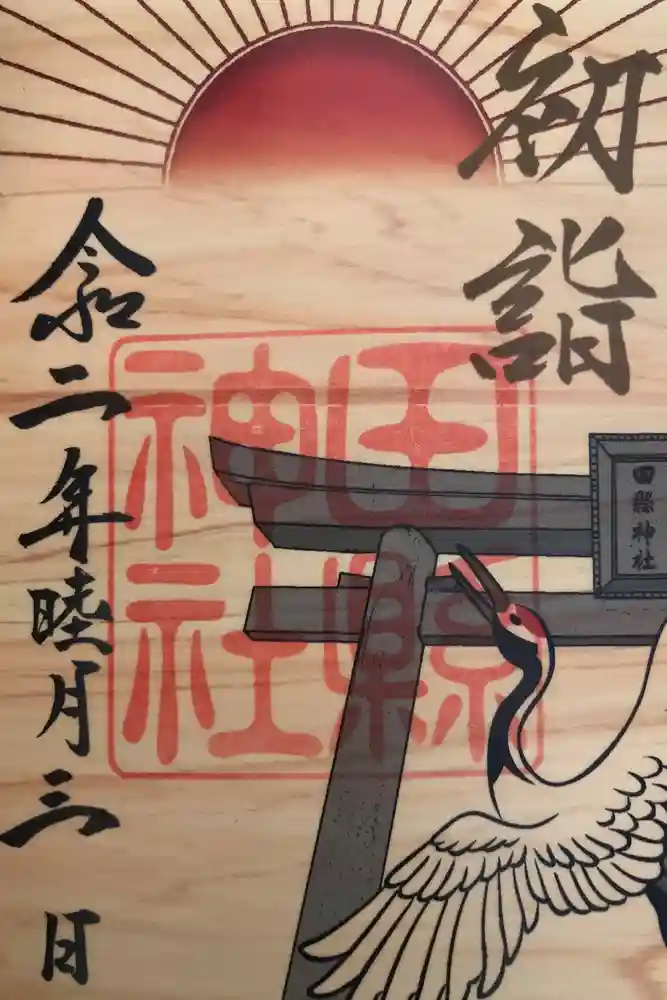 初詣
田縣神社
田縣
神社
令二年睦月三日